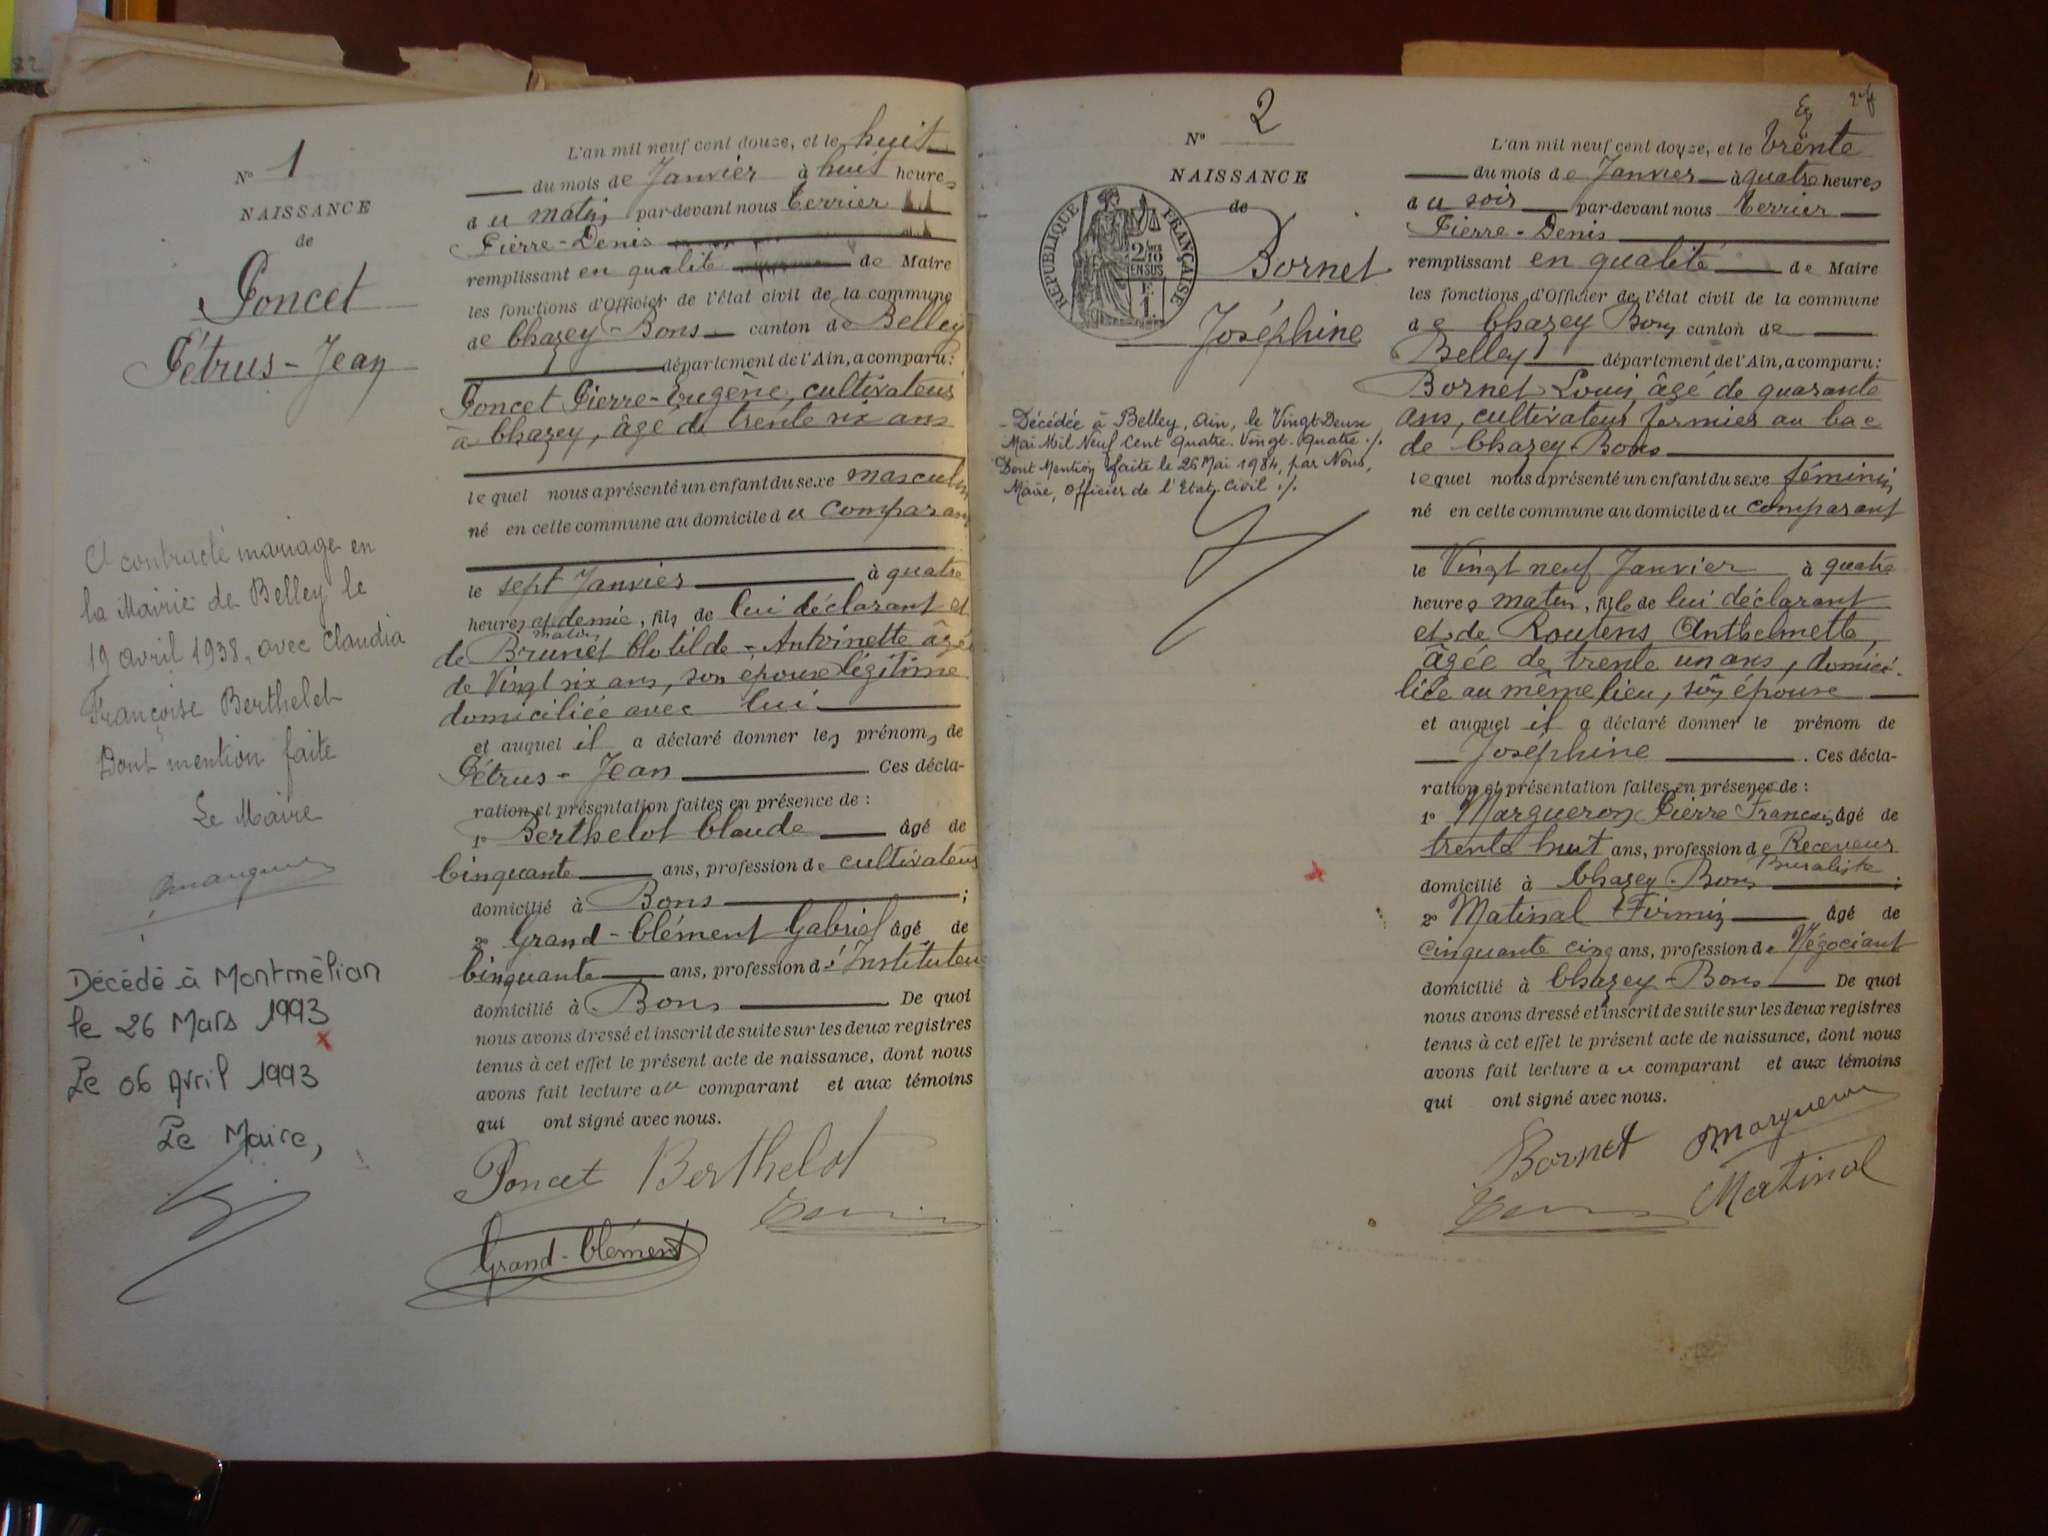 82
N° 1
NAISSANCE
de
Poncet
Pétrus - Jean
A contracté mariage en
la Mairie de Belley le
19 avril 1938, avec Claudia
Françoise Berthelet
Dont mention faite
Le Maire
Décédé à Montmélian
le 26 Mars 1993
Le 06 Avril 1993
Le Maire,
L'an mil neuf cent douze, et le huit
du mois de Janvier à huit heures
du matin par-devant nous Terrier
Pierre-Denis
remplissant en qualité de Maire
les fonctions d'Officier de l'état civil de la commune
de Chazey-Bons canton de Belley
département de l'Ain, a comparu:
Poncet Pierre-Eugène, cultivateur
à Chazey, âgé de trente six ans
lequel nous a présenté un enfant du sexe masculin
né en cette commune au domicile du comparant
le sept Janvier à quatre
heures et demie, fils de lui déclarant et
matin
de Brunet Clotilde-Antoinette âgée
de Vingt six ans, son épouse légitime
domiciliée avec lui
et auquel il a déclaré donner les prénoms de
Pétrus-Jean Ces décla-
ration et présentation faites en présence de :
1° Berthelot Claude âgé de
Cinquante ans, profession de cultivateur
domicilié à Bons ;
2° Grand-Clément Gabriel âgé de
Cinquante ans, profession d'Instituteur
domicilié à Bons De quoi
nous avons dressé et inscrit de suite sur les deux registres
tenus à cet effet le présent acte de naissance, dont nous
avons fait lecture au comparant et aux témoins
qui ont signé avec nous.
Poncet Berthelot
Grand-Clément
N° 2
NAISSANCE
de
Bornet
Joséphine
REPUBLIQUE FRANÇAISE
2/10 EN SUS
- Décédée à Belley, Ain, le Vingt-Deux
Mai Mil Neuf Cent Quatre-Vingt-Quatre ./.
Dont Mention faite le 26 Mai 1984, par Nous,
Maire, Officier de l'Etat-Civil ./.
L'an mil neuf cent douze, et le trente
du mois de Janvier à quatre heures
du soir par-devant nous Terrier
Pierre-Denis
remplissant en qualité de Maire
les fonctions d'Officier de l'état civil de la commune
de Chazey Bons canton de
Belley département de l'Ain, a comparu:
Bornet Louis âgé de quarante
ans, cultivateur fermier au bac
de Chazey-Bons
lequel nous a présenté un enfant du sexe féminin
né en cette commune au domicile du comparant
le Vingt neuf Janvier à quatre
heures matin, fille de lui déclarant
et de Routens Anthelmette,
âgée de trente un ans, domici-
liée au même lieu, son épouse
et auquel il a déclaré donner le prénom de
Joséphine . Ces décla-
ration et présentation faites en présence de :
1° Margueron Pierre Francois âgé de
trente huit ans, profession de Receveur
Buraliste
domicilié à Chazey-Bons ;
2° Matinal Firmin âgé de
cinquante cinq ans, profession de Négociant
domicilié à Chazey-Bons De quoi
nous avons dressé et inscrit de suite sur les deux registres
tenus à cet effet le présent acte de naissance, dont nous
avons fait lecture au comparant et aux témoins
qui ont signé avec nous.
Bornet Margueron
Matinal